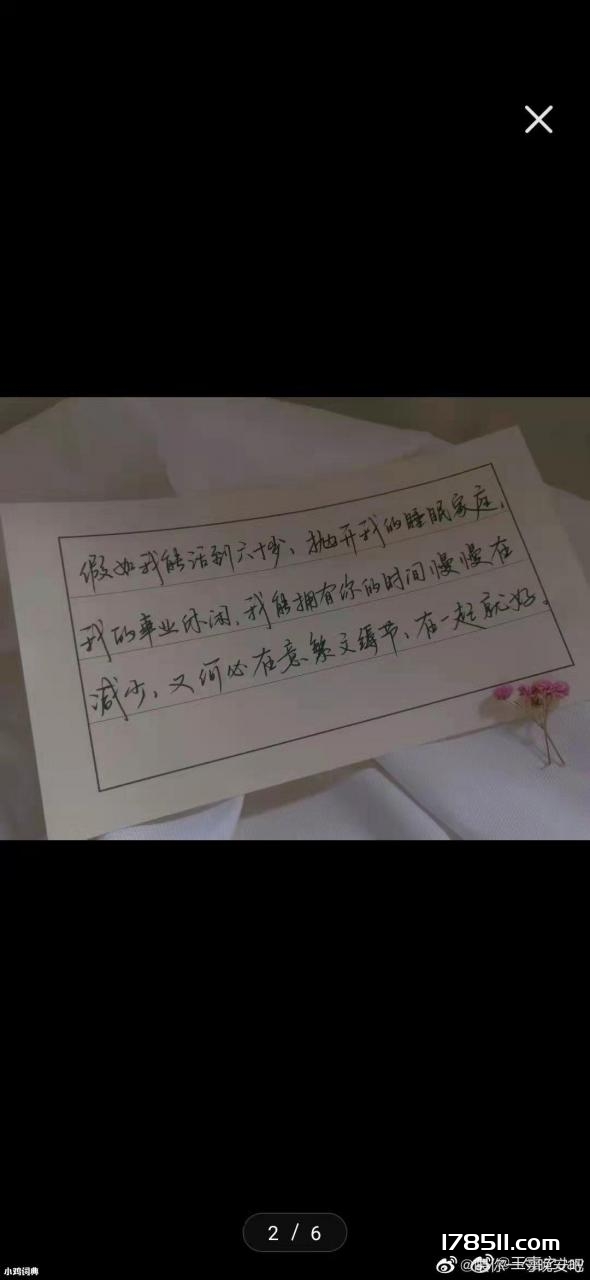 假如我能活到六十岁、抛开我的睡眠家庭、
我的事业休闲，我能拥有你的时间慢慢在
减少，又何必在意繁文缛节，在一起就好。
2 / 6
178511.com
小鸡词典